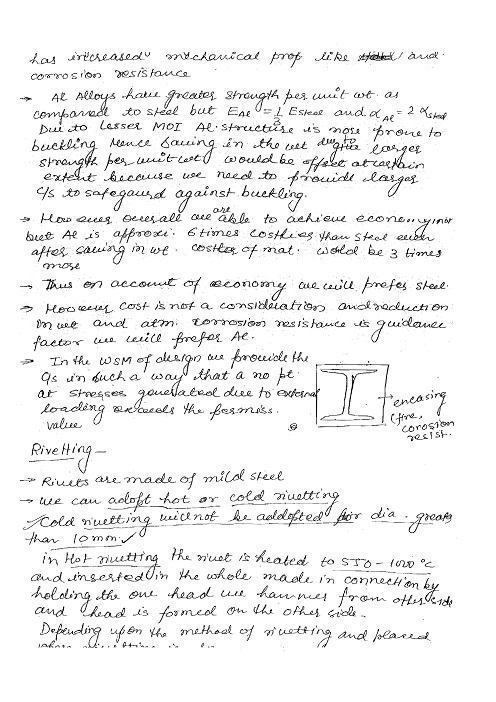 has increased mechanical prop like and
corrosion resistance
→ Al Alloys have greater strength per unit wt. as
compared to steel but E_Al = 1/3 Esteel and α_Al = 2 α_steel
Due to lesser MOI Al. structure is more prone to
buckling Hence Saving in the wet due to larger
strength per unit wt would be offset at certain
extent because we need to provide larger
c/s to safegaurd against buckling.
→ However overall we are able to achieve economy
but Al is approxi. 6 times costlier than steel even
after saving in wt. cost of mat. would be 3 times
more
→ Thus on account of economy we will prefer steel.
→ However cost is not a consideration and reduction
in wt and atm. corrosion resistance is guidance
factor we will prefer Al.
→ In the WSM of design we provide the
c/s in such a way that a no pt.
at stresses generated due to external
loading exceeds the permiss.
value
→ encasing
(fire,
corosion
resist.
Rivetting —
→ Rivets are made of mild steel
→ we can adopt hot or cold rivetting
Cold rivetting will not be addopted for dia. greater
than 10 mm. ✓
in Hot rivetting the rivet is heated to 550 - 1000 °c
and inserted in the whole made in connection by
holding the one head we hammer from other side
and head is formed on the other side.
Depending upon the method of rivetting and placed